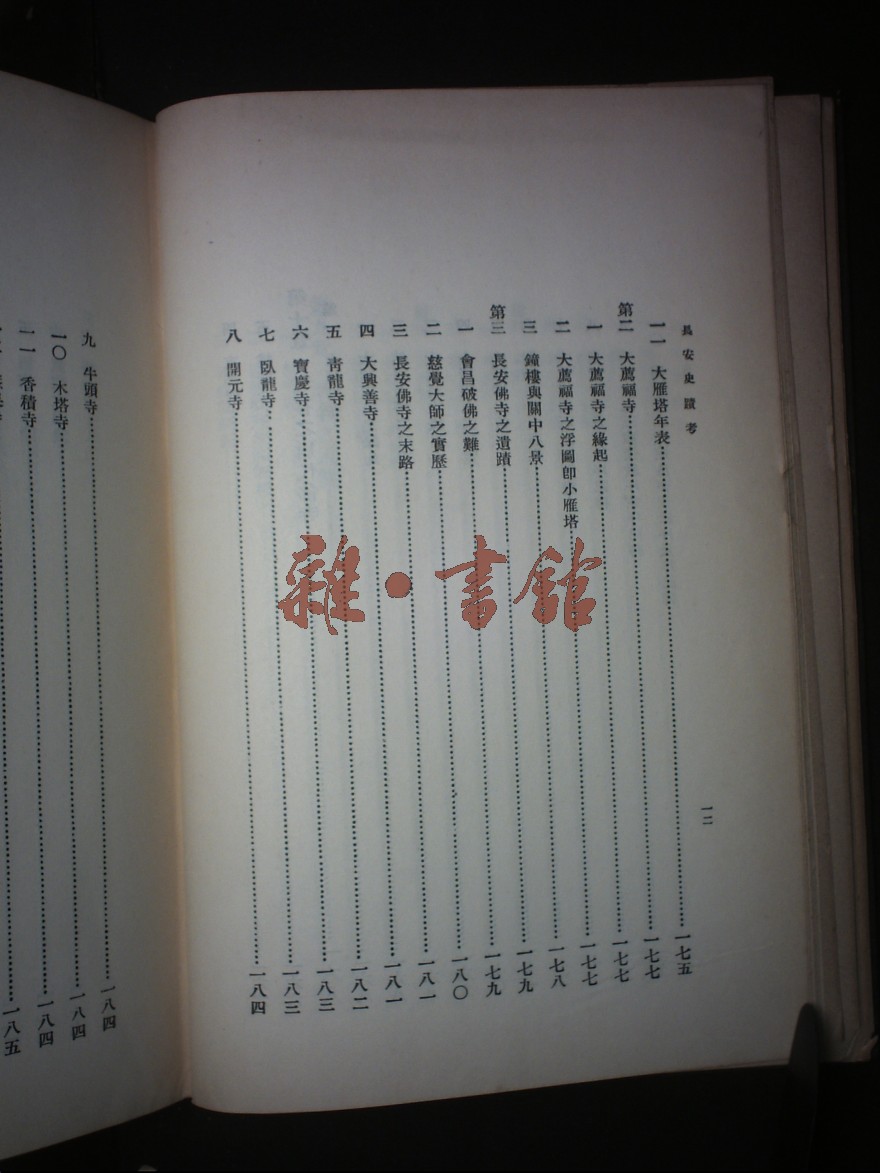 長安史蹟考
一二
一一 大雁塔年表 一七五
第二 大薦福寺 一七七
一 大薦福寺之緣起 一七七
二 大薦福寺之浮圖卽小雁塔 一七八
三 鐘樓與關中八景 一七九
第三 長安佛寺之遺蹟 一七九
一 會昌破佛之難 一八〇
二 慈覺大師之實歷 一八一
三 長安佛寺之末路 一八一
四 大興善寺 一八二
五 靑龍寺 一八三
六 寶慶寺 一八三
七 臥龍寺
八 開元寺 一八四
九 牛頭寺 一八四
一〇 木塔寺 一八四
一一 香積寺 一八四
一八五
雜·書館